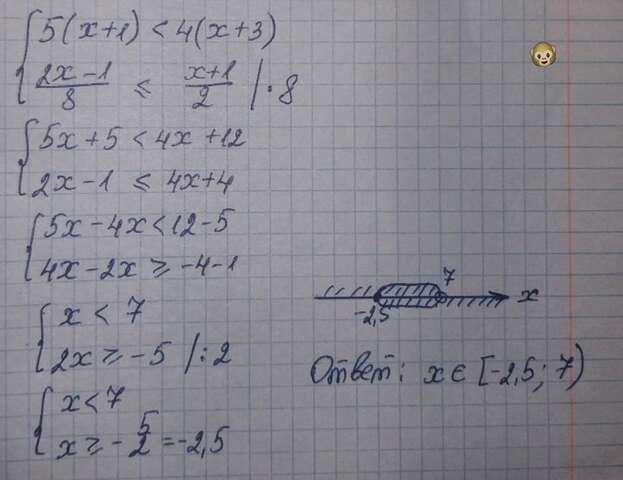 5(x+1) < 4(x+3)
2x-1/8 ≤ x+1/2 |·8
5x+5 < 4x+12
2x-1 ≤ 4x+4
5x-4x<12-5
4x-2x ≥ -4-1
x < 7
2x ≥ -5 |:2
x<7
x ≥ -5/2 = -2,5
7
-2,5
x
Ответ: x ∈ [-2,5; 7)